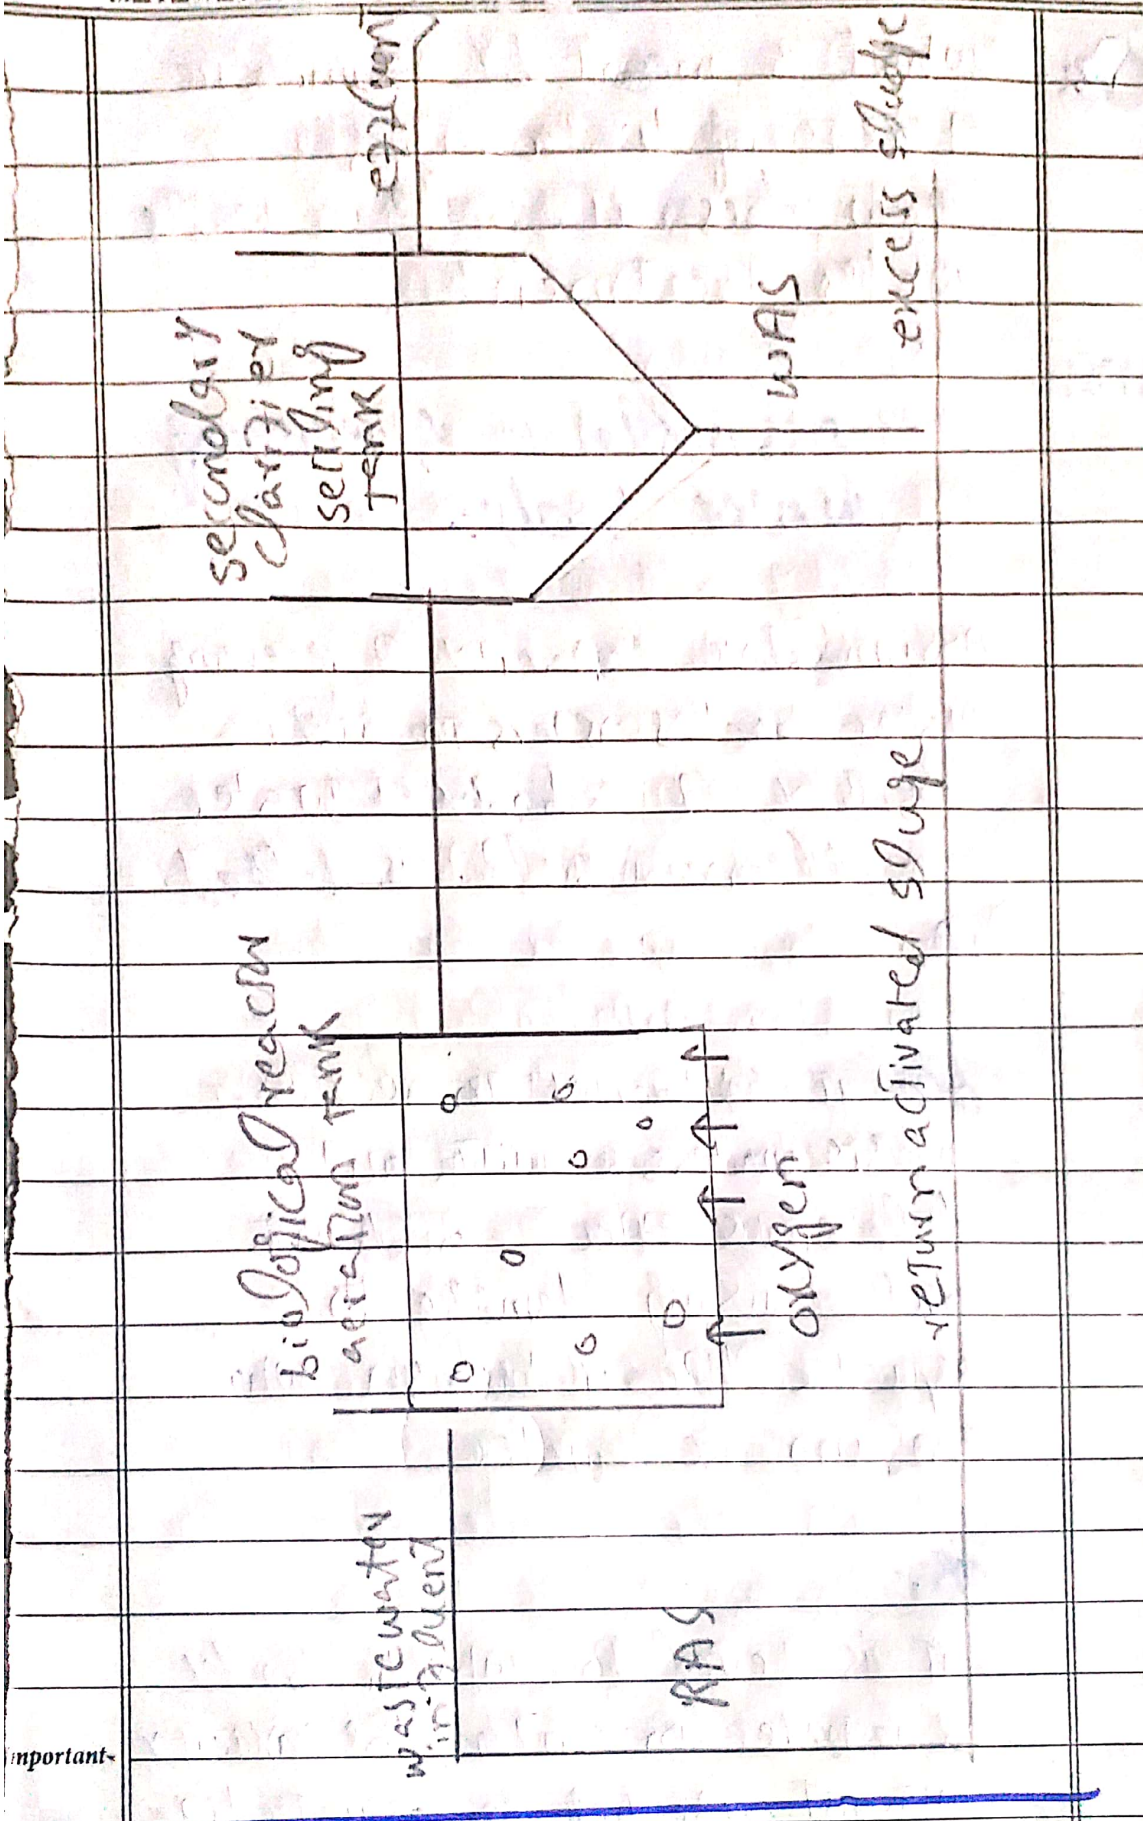 wastewater
influent
RAS
biological reactor
aeration tank
oxygen
return activated sluge
secundary
clarifier
settling
tank
WAS
effluent
excess sludge
mportant-